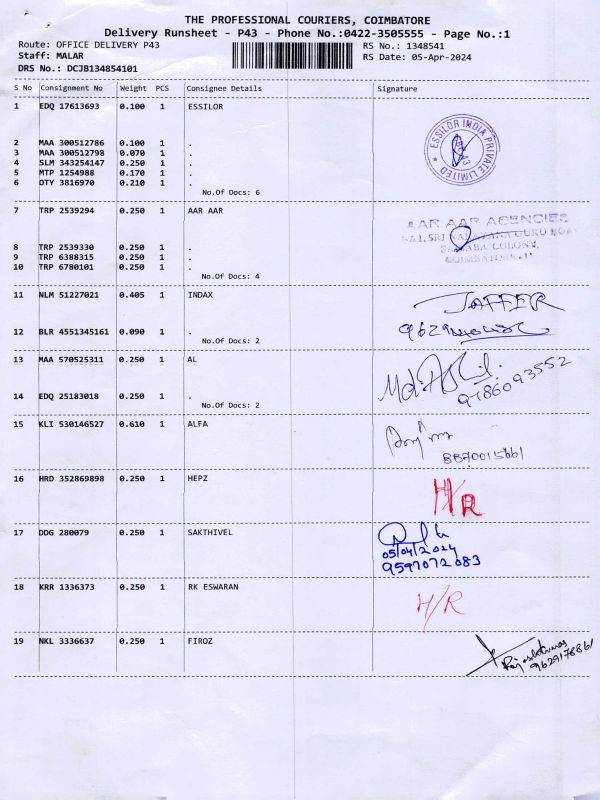 THE PROFESSIONAL COURIERS, COIMBATORE
Delivery Runsheet - P43 - Phone No.:0422-3505555 - Page No.:1
Route: OFFICE DELIVERY P43
RS No.: 1348541
Staff: MALAR
RS Date: 05-Apr-2024
DRS No.: DCJB134854101
S No Consignment No Weight PCS Consignee Details Signature
1 EDQ 17613693 0.100 1 ESSILOR
ESSILOR INDIA PRIVATE LIMITED
2 MAA 300512786 0.100 1 .
3 MAA 300512798 0.070 1 .
4 SLM 343254147 0.250 1 .
5 MTP 1254988 0.170 1 .
6 DTY 3816970 0.210 1 .
No.Of Docs: 6
7 TRP 2539294 0.250 1 AAR AAR
AAR AAR AGENCIES
COLONY,
8 TRP 2539330 0.250 1 .
9 TRP 6388315 0.250 1 .
10 TRP 6780101 0.250 1 .
No.Of Docs: 4
11 NLM 51227021 0.405 1 INDAX
JAFFER
12 BLR 4551345161 0.090 1 .
No.Of Docs: 2
13 MAA 570525311 0.250 1 AL
9786093552
14 EDQ 25183018 0.250 1 .
No.Of Docs: 2
15 KLI 530146527 0.610 1 ALFA
8870015661
16 HRD 352869898 0.250 1 HEPZ
H/R
17 DDG 280079 0.250 1 SAKTHIVEL
05/04/2024
9597072083
18 KRR 1336373 0.250 1 RK ESWARAN
H/R
19 NKL 3336637 0.250 1 FIROZ
9629178861